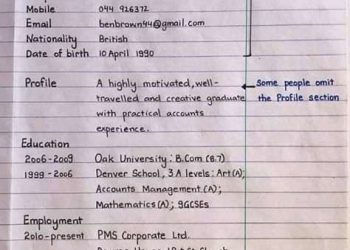 Mobile 044 926372
Email benbrown44@gmail.com
Nationality British
Date of birth 10 April 1990
Profile A highly motivated, well- Some people omit
travelled and creative graduate the Profile section
with practical accounts
experience.
Education
2006-2009 Oak University: B.Com (B.7)
1999-2006 Denver School, 3 A levels: Art(A);
Accounts Management (A);
Mathematics (A); 9GCSEs
Employment
2010-present PMS Corporate Ltd.